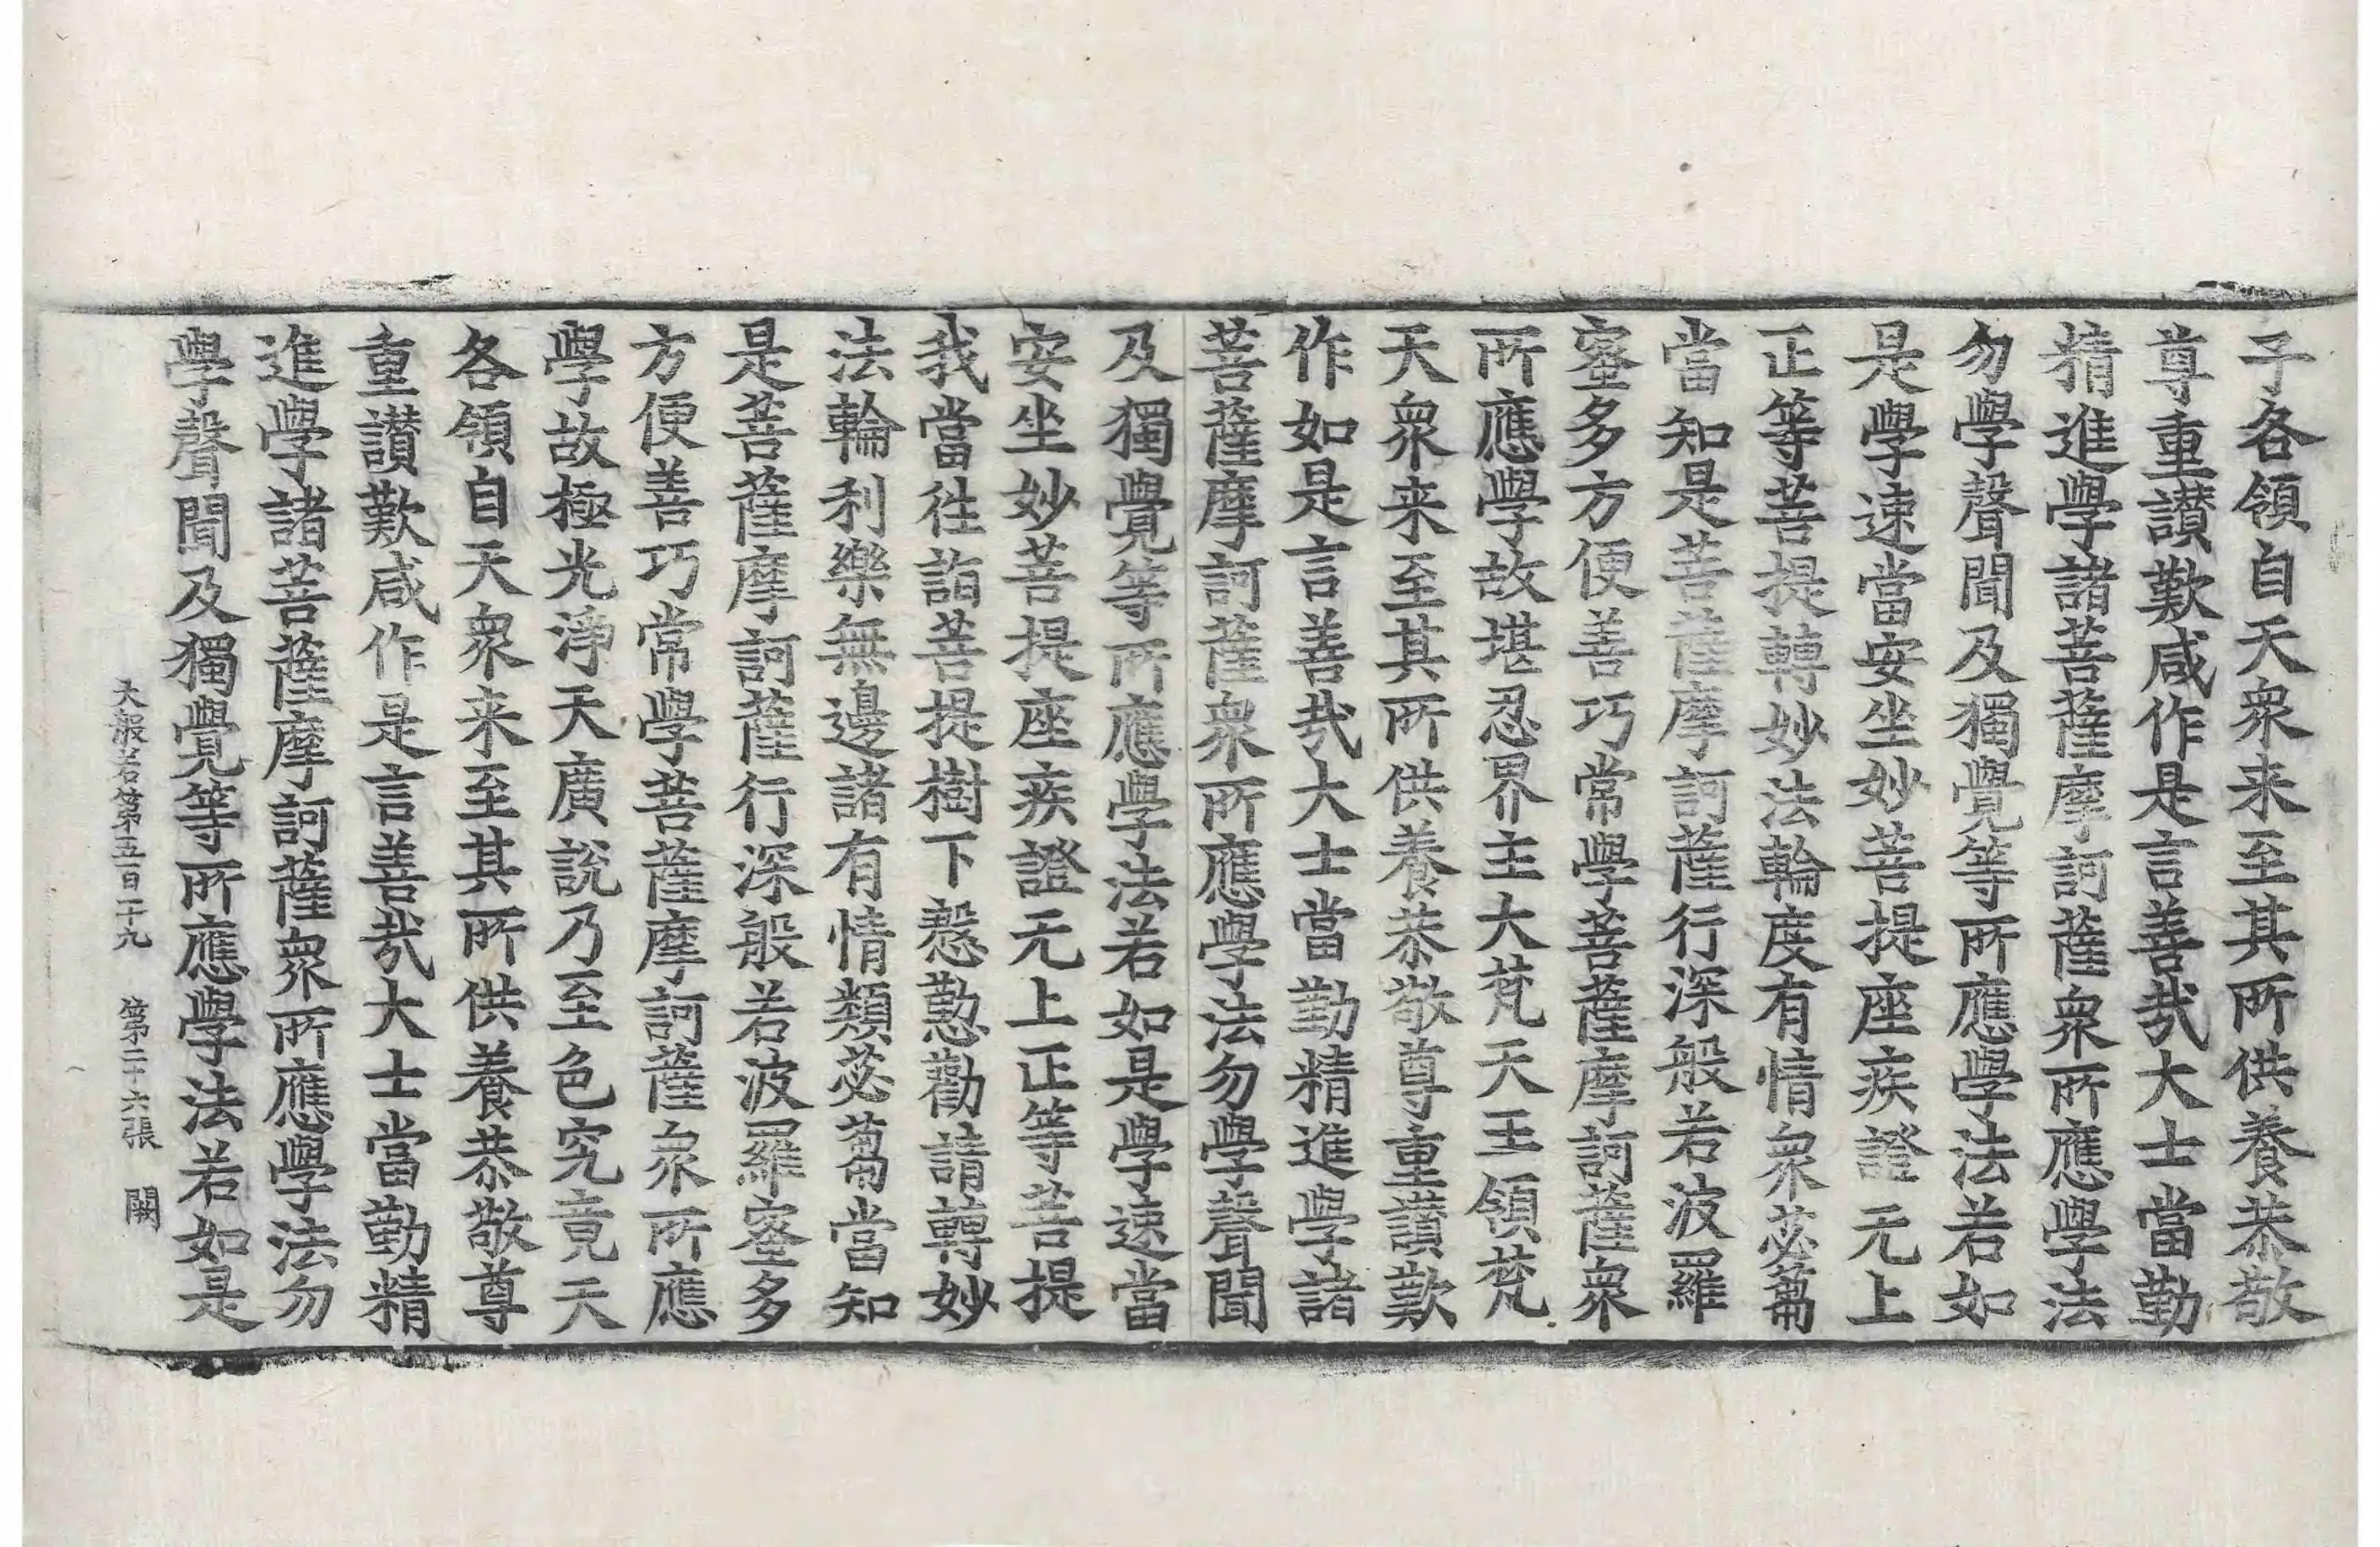 子各領自天衆来至其所供養恭敬
尊重讃歎咸作是言善哉大士當勤
精進學諸菩薩摩訶薩衆所應學法
勿學聲聞及獨覺等所應學法若如
是學速當安坐妙菩提座疾證无上
正等菩提轉妙法輪度有情衆苾芻
當知是菩薩摩訶薩行深般若波羅
蜜多方便善巧常學菩薩摩訶薩衆
所應學故堪忍界主大梵天王領梵
天衆来至其所供養恭敬尊重讃歎
作如是言善哉大士當勤精進學諸
菩薩摩訶薩衆所應學法勿學聲聞
及獨覺等所應學法若如是學速當
安坐妙菩提座疾證无上正等菩提
我當往詣菩提樹下慇懃勸請轉妙
法輪利樂無邊諸有情類苾芻當知
是菩薩摩訶薩行深般若波羅蜜多
方便善巧常學菩薩摩訶薩衆所應
學故極光淨天廣說乃至色究竟天
各領自天衆来至其所供養恭敬尊
重讃歎咸作是言善哉大士當勤精
進學諸菩薩摩訶薩衆所應學法勿
學聲聞及獨覺等所應學法若如是
大般若第五百十九 第二十六張 闕